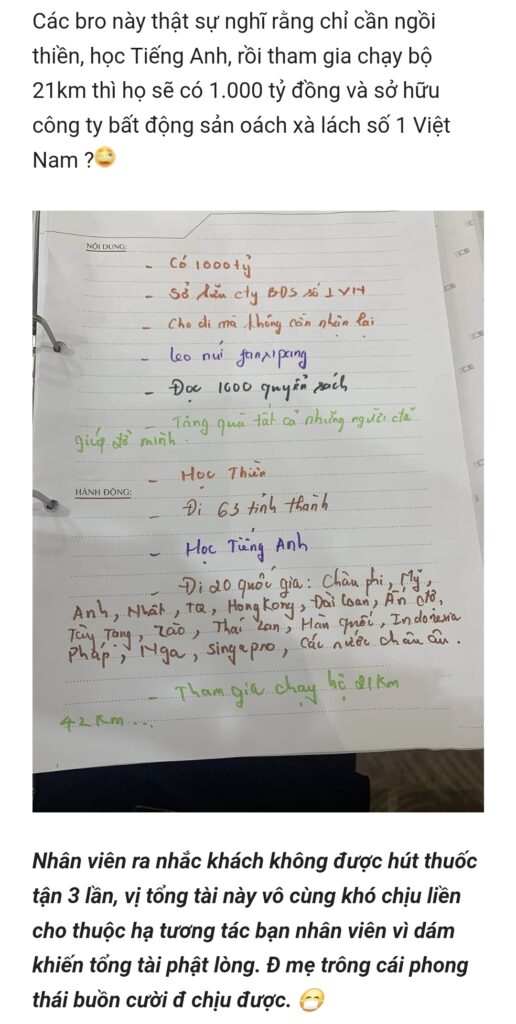 Các bro này thật sự nghĩ rằng chỉ cần ngồi
thiền, học Tiếng Anh, rồi tham gia chạy bộ
21km thì họ sẽ có 1.000 tỷ đồng và sở hữu
công ty bất động sản oách xà lách số 1 Việt
Nam ?
NỘI DUNG:
- Có 1000 tỷ
- Sở hữu cty BĐS số 1 VN
- Cho đi mà không cần nhận lại
- leo núi fanxipang
- Đọc 1000 quyển sách
- Tặng quà tất cả những người đã
giúp đỡ mình.
- Học Thiền
HÀNH ĐỘNG:
- Đi 63 tỉnh thành
- Học Tiếng Anh
- Đi 20 quốc gia: Châu phi, Mỹ,
Anh, Nhật, TQ, HongKong, Đài Loan, Ấn độ,
Tây Tạng, Lào, Thái Lan, Hàn quốc, Indonesia
Pháp, Nga, singapro, các nước châu âu.
- Tham gia chạy bộ 21Km
42Km...
Nhân viên ra nhắc khách không được hút thuốc
tận 3 lần, vị tổng tài này vô cùng khó chịu liền
cho thuộc hạ tương tác bạn nhân viên vì dám
khiến tổng tài phật lòng. Đ mẹ trông cái phong
thái buồn cười đ chịu được.